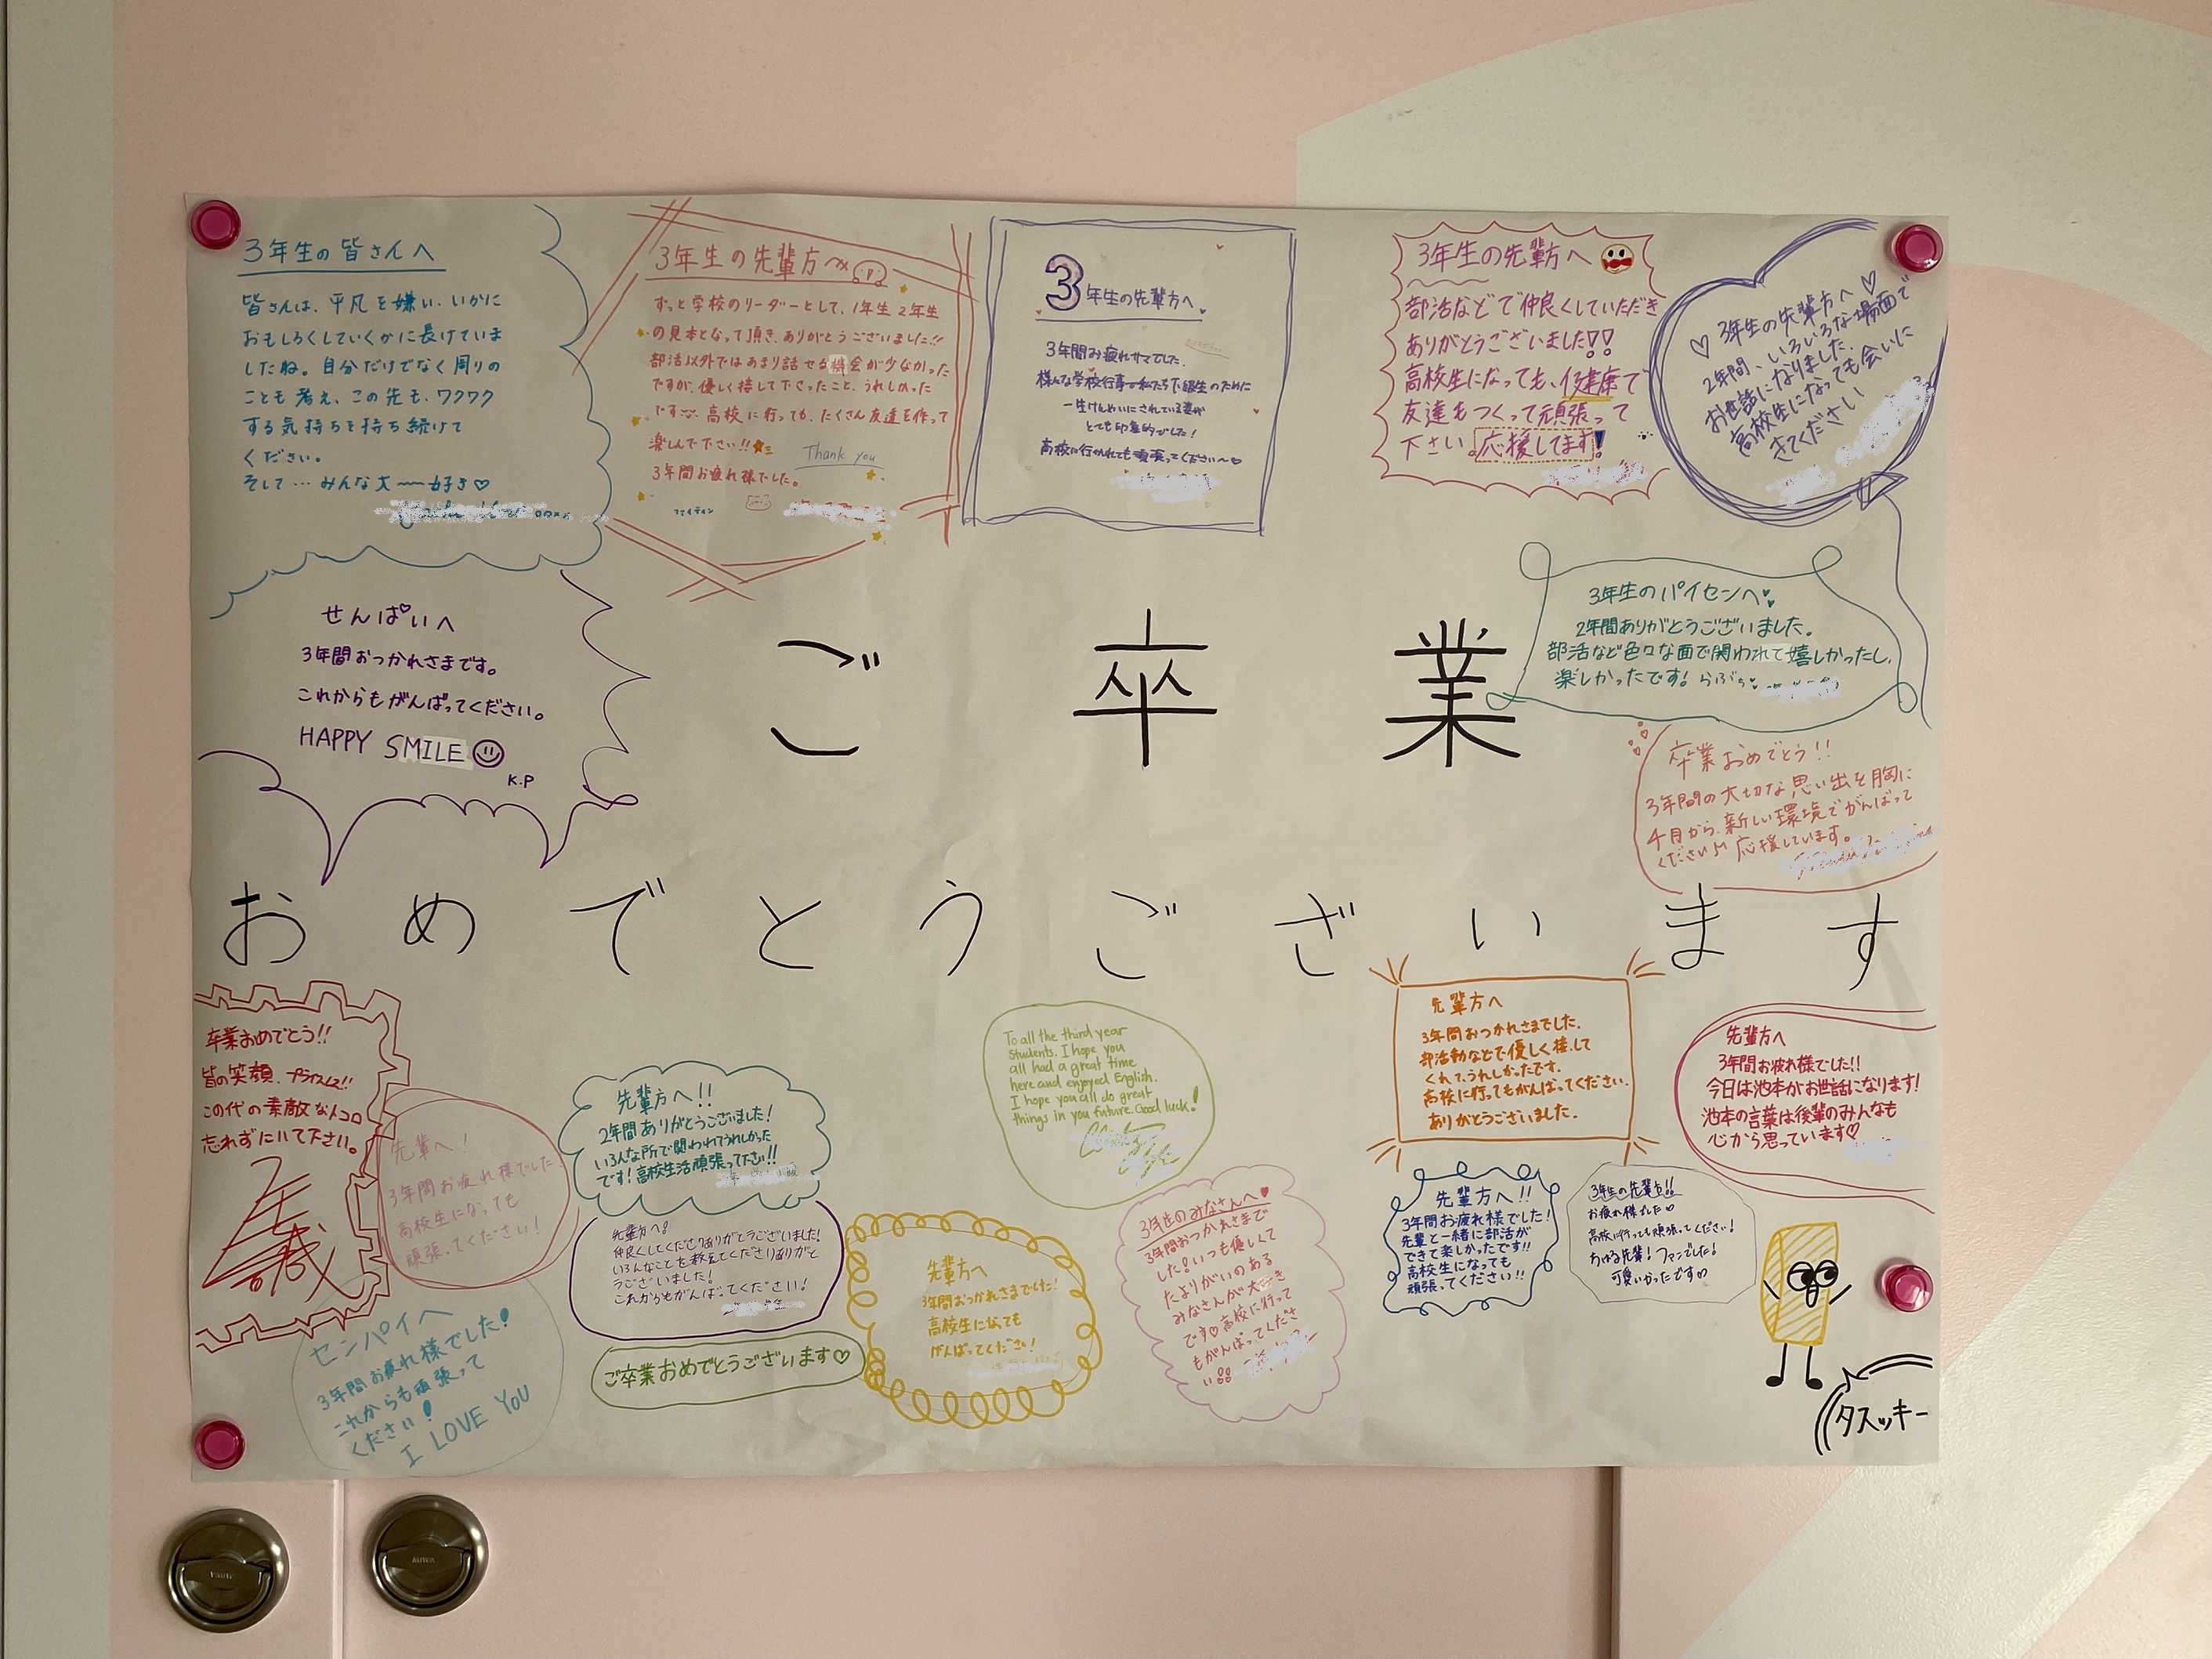 3年生の皆さんへ
皆さんは、平凡を嫌い、いかに
おもしろくしていくかに長けていま
したね。自分だけでなく周りの
ことも考え、この先も、ワクワク
する気持ちを持ち続けて
ください。
そして…みんな大〜好き♡
3年生の先輩方へ
ずっと学校のリーダーとして、1年生2年生
の見本となって頂き、ありがとうございました!!
部活以外ではあまり話せる機会が少なかった
ですが、優しく接して下さったこと、うれしかった
です。高校に行っても、たくさん友達を作って
楽しんで下さい!!
Thank you
3年間お疲れ様でした。
ファイティン
3年生の先輩方へ
3年間お疲れサマでした。
様々な学校行事で私たち下級生のために
一生けんめいにされている姿が
とても印象的でした!
高校に行かれても頑張ってください〜♡
3年生の先輩方へ
部活などで仲良くしていただき
ありがとうございました!!
高校生になっても、健康で
友達もつくって頑張って
下さい。応援してます!
♡3年生の先輩方へ♡
2年間、いろいろな場面で
お世話になりました。
高校生になっても会いに
きてください
せんぱいへ
3年間おつかれさまです。
これからもがんばってください。
HAPPY SMILE
K.P
3年生のパイセンへ
2年間ありがとうございました。
部活など色々な面で関われて嬉しかったし、
楽しかったです! らぶぅ
卒業おめでとう!!
3年間の大切な思い出を胸に
4月から、新しい環境でがんばって
ください!! 応援しています。
ご卒業
おめでとうございます
卒業おめでとう!!
皆の笑顔、プライスレス!!
この代の素敵な
忘れずにいて下さい。
先輩へ!
3年間お疲れ様でした
高校生になっても
頑張ってください!
センパイへ
3年間お疲れ様でした!
これからも頑張って
ください!
I LOVE YOU
先輩方へ!!
2年間ありがとうございました!
いろんな所で関われてうれしかった
です!高校生活頑張って下さい!!
先輩方へ!
仲良くしてくださりありがとうございました!
いろんなことを教えてくださりありがと
うございました!
これからもがんばってください!
ご卒業おめでとうございます♡
先輩方へ
3年間おつかれさまでした!
高校生になっても
がんばってください!
To all the third year
students. I hope you
all had a great time
here and enjoyed English.
I hope you all do great
things in you future. Good luck!
3年生のみなさんへ♥
3年間おつかれさまで
した!いつも優しくて
たよりがいのある
みなさんが大好き
です♡高校に行って
もがんばってくださ
い
先輩方へ
3年間おつかれさまでした。
部活動などで優しく接して
くれて、うれしかったです。
高校に行ってもがんばってください。
ありがとうございました。
先輩方へ
3年間お疲れ様でした!!
今日は池本がお世話になります!
池本の言葉は後輩のみんなも
心から思っています♡
先輩方へ!!
3年間お疲れ様でした!
先輩と一緒に部活が
できて楽しかったです!!
高校生になっても
頑張ってください!!
3年生の先輩方!!
お疲れ様でした♡
高校に行っても頑張ってください!
先輩!ファンでした!
可愛いかったです♡
タスッキー